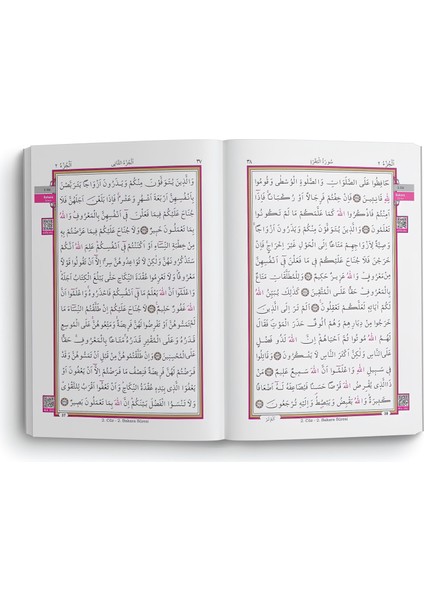 اَلْجُزْءُ ٢
اَلْجُزْءُ الثَّانِى
وَالَّذِينَ يُتَوَفَّوْنَ مِنْكُمْ وَيَذَرُونَ اَزْوَاجًا يَتَرَبَّصْنَ
بِاَنْفُسِهِنَّ اَرْبَعَةَ اَشْهُرٍ وَعَشْرًا فَاِذَا بَلَغْنَ اَجَلَهُنَّ فَلَا
جُنَاحَ عَلَيْكُمْ فِيمَا فَعَلْنَ فِى اَنْفُسِهِنَّ بِالْمَعْرُوفِ وَاللّٰهُ
بِمَا تَعْمَلُونَ خَبِيرٌ وَلَا جُنَاحَ عَلَيْكُمْ فِيمَا عَرَّضْتُمْ بِهِ
مِنْ خِطْبَةِ النِّسَاءِ اَوْ اَكْنَنْتُمْ فِى اَنْفُسِكُمْ عَلِمَ اللّٰهُ اَنَّكُمْ
سَتَذْكُرُونَهُنَّ وَلٰكِنْ لَا تُوَاعِدُوهُنَّ سِرًّا اِلَّا اَنْ تَقُولُوا قَوْلًا
مَعْرُوفًا وَلَا تَعْزِمُوا عُقْدَةَ النِّكَاحِ حَتّٰى يَبْلُغَ الْكِتَابُ اَجَلَهُ
وَاعْلَمُوا اَنَّ اللّٰهَ يَعْلَمُ مَا فِى اَنْفُسِكُمْ فَاحْذَرُوهُ وَاعْلَمُوا
اَنَّ اللّٰهَ غَفُورٌ حَلِيمٌ لَا جُنَاحَ عَلَيْكُمْ اِنْ طَلَّقْتُمُ النِّسَاءَ مَا لَمْ
تَمَسُّوهُنَّ اَوْ تَفْرِضُوا لَهُنَّ فَرِيضَةً وَمَتِّعُوهُنَّ عَلَى الْمُوسِعِ
قَدَرُهُ وَعَلَى الْمُقْتِرِ قَدَرُهُ مَتَاعًا بِالْمَعْرُوفِ حَقًّا
عَلَى الْمُحْسِنِينَ وَاِنْ طَلَّقْتُمُوهُنَّ مِنْ قَبْلِ اَنْ تَمَسُّوهُنَّ وَقَدْ
فَرَضْتُمْ لَهُنَّ فَرِيضَةً فَنِصْفُ مَا فَرَضْتُمْ اِلَّا اَنْ يَعْفُونَ اَوْ
يَعْفُوَا الَّذِى بِيَدِهِ عُقْدَةُ النِّكَاحِ وَاَنْ تَعْفُوا اَقْرَبُ لِلتَّقْوٰى
وَلَا تَنْسَوُا الْفَضْلَ بَيْنَكُمْ اِنَّ اللّٰهَ بِمَا تَعْمَلُونَ بَصِيرٌ
2. Cüz - 2. Bakara Sûresi
اَلْجُزْءُ ٢
سُورَةُ الْبَقَرَةِ
حَافِظُوا عَلَى الصَّلَوَاتِ وَالصَّلٰوةِ الْوُسْطٰى وَقُومُوا
لِلّٰهِ قَانِتِينَ فَاِنْ خِفْتُمْ فَرِجَالًا اَوْ رُكْبَانًا فَاِذَا
اَمِنْتُمْ فَاذْكُرُوا اللّٰهَ كَمَا عَلَّمَكُمْ مَا لَمْ تَكُونُوا
تَعْلَمُونَ وَالَّذِينَ يُتَوَفَّوْنَ مِنْكُمْ وَيَذَرُونَ اَزْوَاجًا
وَصِيَّةً لِاَزْوَاجِهِمْ مَتَاعًا اِلَى الْحَوْلِ غَيْرَ اِخْرَاجٍ فَاِنْ
خَرَجْنَ فَلَا جُنَاحَ عَلَيْكُمْ فِى مَا فَعَلْنَ فِى اَنْفُسِهِنَّ
مِنْ مَعْرُوفٍ وَاللّٰهُ عَزِيزٌ حَكِيمٌ وَلِلْمُطَلَّقَاتِ مَتَاعٌ
بِالْمَعْرُوفِ حَقًّا عَلَى الْمُتَّقِينَ كَذٰلِكَ يُبَيِّنُ اللّٰهُ
لَكُمْ اٰيَاتِهِ لَعَلَّكُمْ تَعْقِلُونَ اَلَمْ تَرَ اِلَى الَّذِينَ
خَرَجُوا مِنْ دِيَارِهِمْ وَهُمْ اُلُوفٌ حَذَرَ الْمَوْتِ فَقَالَ
لَهُمُ اللّٰهُ مُوتُوا ثُمَّ اَحْيَاهُمْ اِنَّ اللّٰهَ لَذُو فَضْلٍ
عَلَى النَّاسِ وَلٰكِنَّ اَكْثَرَ النَّاسِ لَا يَشْكُرُونَ وَقَاتِلُوا
فِى سَبِيلِ اللّٰهِ وَاعْلَمُوا اَنَّ اللّٰهَ سَمِيعٌ عَلِيمٌ مَنْ
ذَا الَّذِى يُقْرِضُ اللّٰهَ قَرْضًا حَسَنًا فَيُضَاعِفَهُ لَهُ اَضْعَافًا
كَثِيرَةً وَاللّٰهُ يَقْبِضُ وَيَبْصُطُ وَاِلَيْهِ تُرْجَعُونَ
2. Cüz - 2. Bakara Sûresi